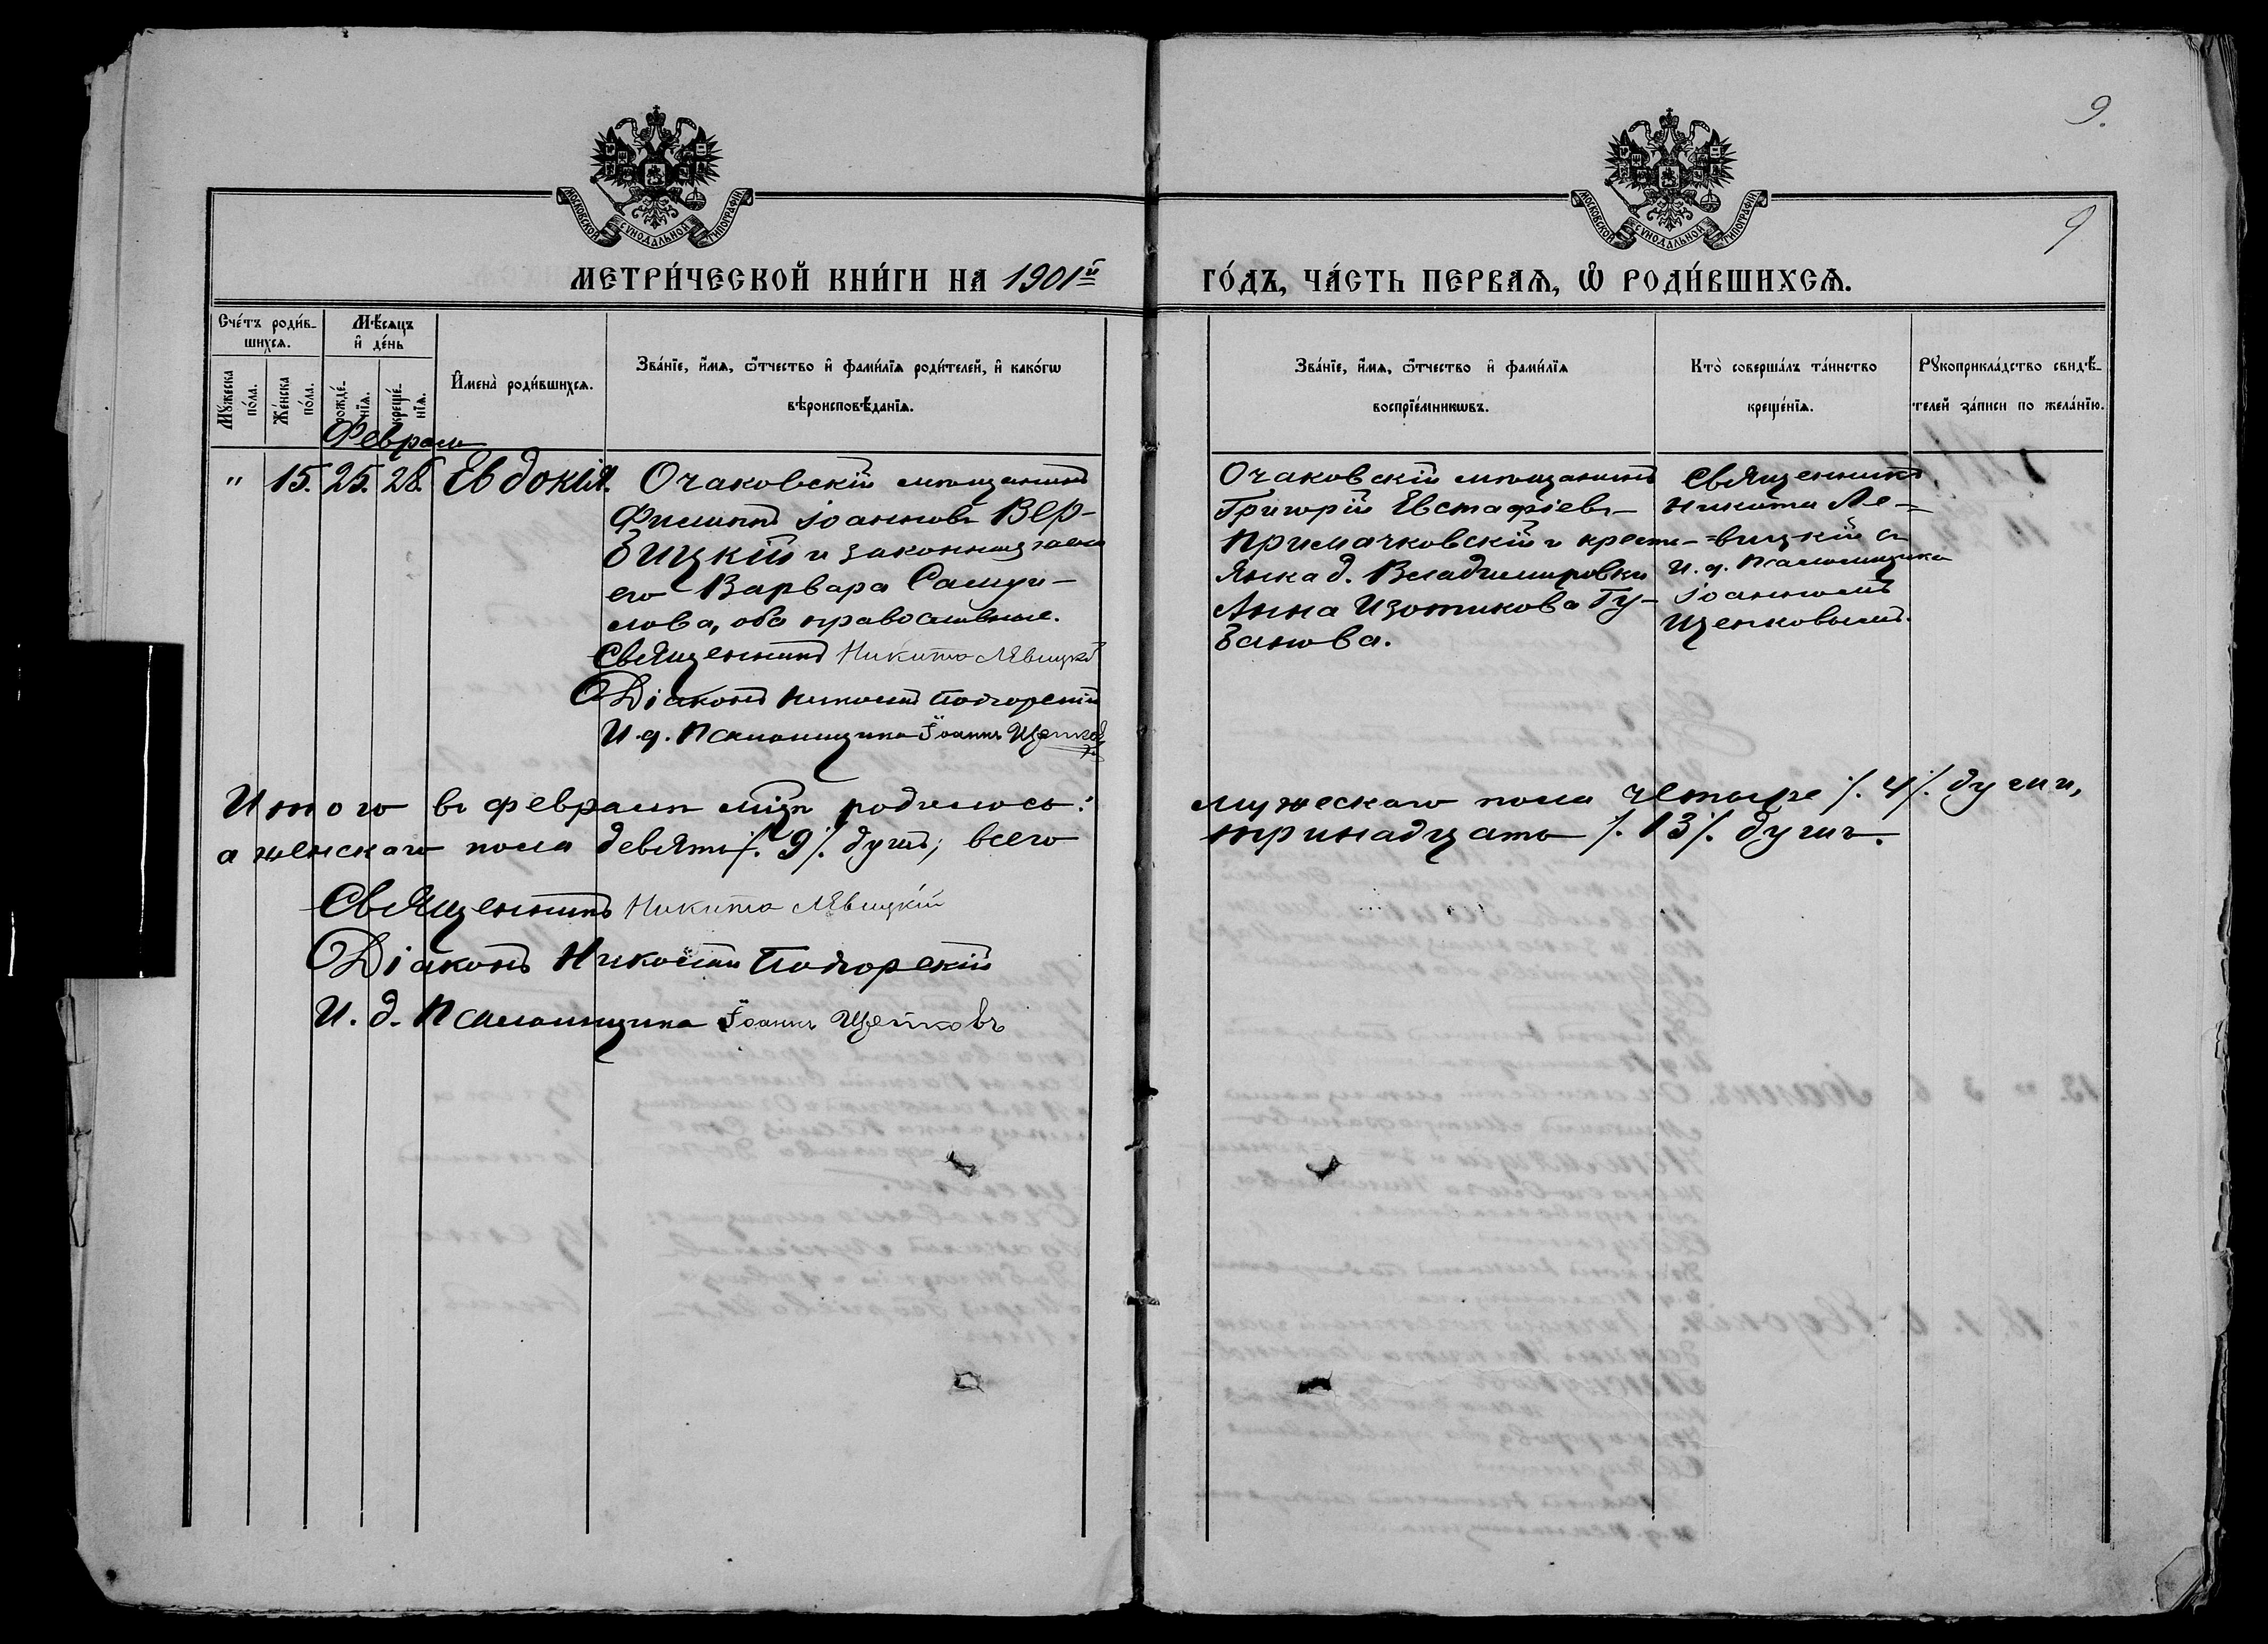 9.
9
МОСКОВСКОЙ СѴНОДАЛЬНОЙ ТИПОГРАФІИ
МОСКОВСКОЙ СѴНОДАЛЬНОЙ ТИПОГРАФІИ
МЕТРИ́ЧЕСКОЙ КНИ́ГИ НА 1901й ГО́ДЪ, ЧА́СТЬ ПЕРВАѦ, Ѽ РОДИ́ВШИХСѦ.
Сче́тъ роди́в-
шихся.
Мѣ́сяцъ
и҆ де́нь
Мꙋ́жеска
по́ла.
Же́нска
по́ла.
Рожде́-
нїя.
Креще́-
нїя.
И҆мена̀ роди́вшихся.
Зва́нїе, и҆́мя, ѻ҆́тчество и҆ фами́лїя роди́телей, и҆ како́гѡ
вѣроисповѣ́данїя.
Зва́нїе, и҆́мя, ѻ҆́тчество и҆ фами́лїя
воспрїе́мникѡвъ.
Кто̀ соверша́лъ та́инство
креще́нїя.
Рꙋкоприкла́дство свидѣ́-
телей за́писи по жела́нїю.
Февраль
" 15. 25. 28. Евдокія.
Очаковскій мѣщанинъ
Филиппъ Іоанновъ Вер-
бицкій и законная жена
его Варвара Самуи-
лова, оба православные.
Священникъ Никита Левицкій
Діаконъ Николай Подгорскій
И. д. Псаломщика Іоаннъ
Очаковскій мѣщанинъ
Григорій Евстафіевъ
Примачковскій и крестьянка
д. Владимировки
Анна Изотикова Гу-
банова.
Священникъ
Никита Ле-
=вицкій съ
И. д. Псаломщика
Іоанномъ
Итого въ февралѣ мцѣ родилось: мужескаго пола четыре /. 4 /. души,
а женскаго пола девять /. 9 /. душъ; всего тринадцать /. 13 /. душъ.
Священникъ Никита Левицкій
Діаконъ Николай Подгорскій
И. д. Псаломщика Іоаннъ